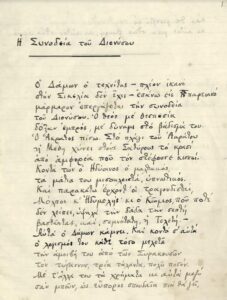 Η Συνοδεία τοῦ Διονύσου
Ὁ Δάμων ὁ τεχνίτης – πλέον ἱκανὸ
στὴν δὲν ἔχει – ἐπάνω εἰς Παριανὸ
μάρμαρον ἐπεργάζεται τὴν συνοδεία
τοῦ Διονύσου. Ὁ θεὸς μὲ θεσπεσία
δόξαν ἐμπρός, μὲ δύναμι στὸ βάδισμά του.
Ὁ Ἄκρατος πίσω. Στὸ πλάγι τοῦ Ἀκράτου
ἡ Μέθη χύνει στοὺς Σατύρους τὸ κρασὶ
ἀπὸ ἀμφορέα ποὺ τὸν στέφουνε κισσοί.
Κοντά των ὁ Ἡδύοινος ὁ μαλθακός,
τὰ μάτια του μισοκλειστά, ὑπνωτικός.
Καὶ παρακάτω ἔρχοντ' οἱ τραγουδισταὶ
Μόλπος κ' Ἡδυμελής, κι ὁ Κῶμος ποὺ ποτὲ
δὲν ἀφίνει νὰ σβύσῃ τῆς
βαστᾷ· καί, σεμνοτάτη, ἡ Τελετή. –
Αὐτὰ ὁ Δάμων κάμνει. Καὶ κοντὰ σ' αὐτὰ
ὁ λογισμός του κάθε τόσο μελετᾷ
τὴν ἀμοιβή του ἀπὸ τῶν Συρακουσῶν
τὸν τρία τάλαντα, πολὺ ποσόν.
Μὲ τἄλλα του τὰ χρήματα κι αὐτὰ μαζὺ
σὰν μποῦν, ὡς εὔπορος σπουδαῖα πιὰ θὰ ζῇ,